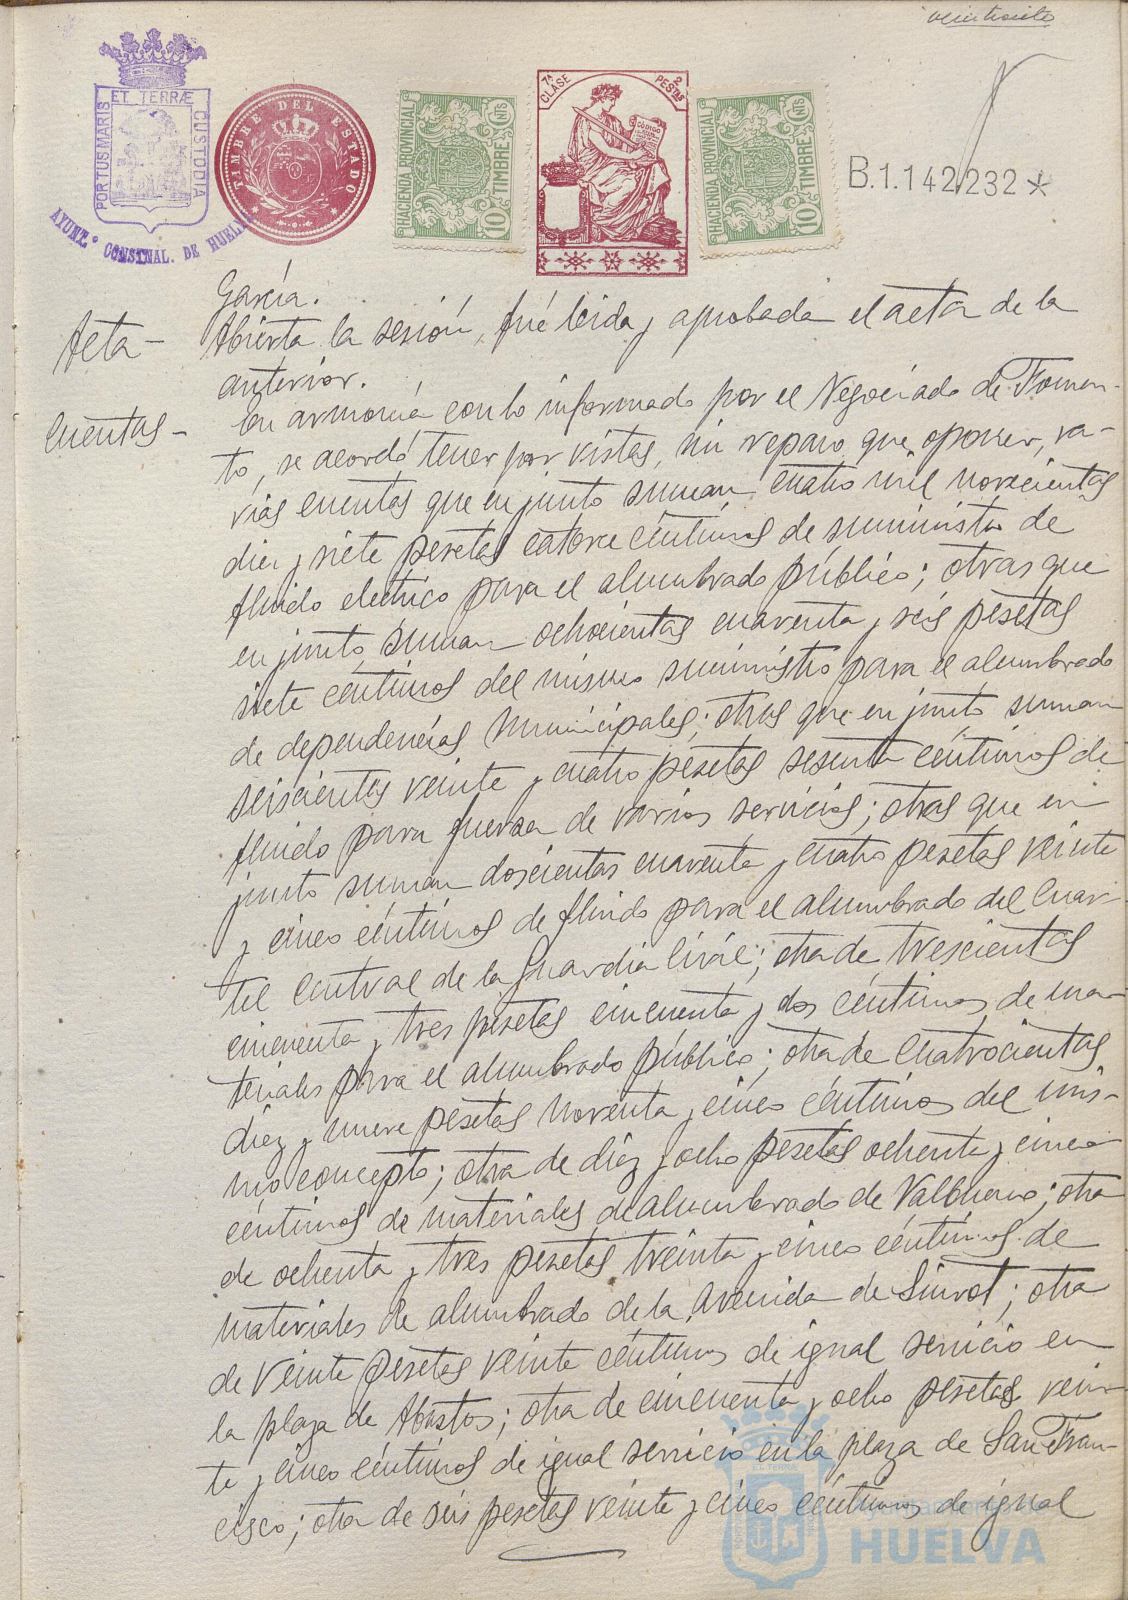 veintisiete
PORTUS MARIS
ET TERRÆ
CUSTODIA
AYUNT.º CONSTNAL. DE HUELVA
TIMBRE DEL ESTADO
HACIENDA PROVINCIAL
10 CTS TIMBRE
7ª CLASE
2 PESTAS
CÓDIGO
HACIENDA PROVINCIAL
10 CTS TIMBRE
B.1.142,232*
García.
Acta— Abierta la sesión, fué leida y aprobada el acta de la
anterior.
Cuentas— En armonía con lo informado por el Negociado de Fomen-
to, se acordó tener por vistas, sin reparo que oponer, va-
rias cuentas que en junto suman cuatro mil novecientas
diez y siete pesetas catorce céntimos de suministro de
fluido electrico para el alumbrado público; otras que
en junto suman ochocientas cuarenta y seis pesetas
siete centimos del mismo suministro para el alumbrado
de dependencias municipales; otras que en junto suman
seiscientas veinte y cuatro pesetas sesenta céntimos de
fluido para fuerza de varios servicios; otras que en
junto suman doscientas cuarenta y cuatro pesetas veinte
y cinco céntimos de fluido para el alumbrado del Cuar-
tel Central de la Guardia Civil; otra de trescientas
cincuenta y tres pesetas cincuenta y dos céntimos de ma-
teriales para el alumbrado público; otra de cuatrocientas
diez y nueve pesetas noventa y cinco céntimos del mis-
mo concepto; otra de diez y ocho pesetas ochenta y cinco
céntimos de materiales de alumbrado de Valbueno; otra
de ochenta y tres pesetas treinta y cinco céntimos de
materiales de alumbrado de la Avenida de Siurot; otra
de veinte pesetas veinte centimos de igual servicio en
la plaza de Abastos; otra de cincuenta y ocho pesetas vein-
te y cinco céntimos de igual servicio en la plaza de San Fran-
cisco; otra de seis pesetas veinte y cinco céntimos de igual
Ayuntamiento de
HUELVA